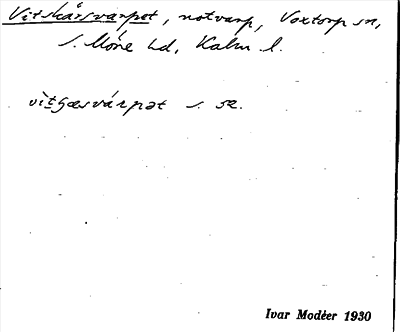 Vitskärsvarpet, notvarp, Voxtorp sn,
S. Möre hd, Kalm. l.
s. se.
Ivar Modéer 1930